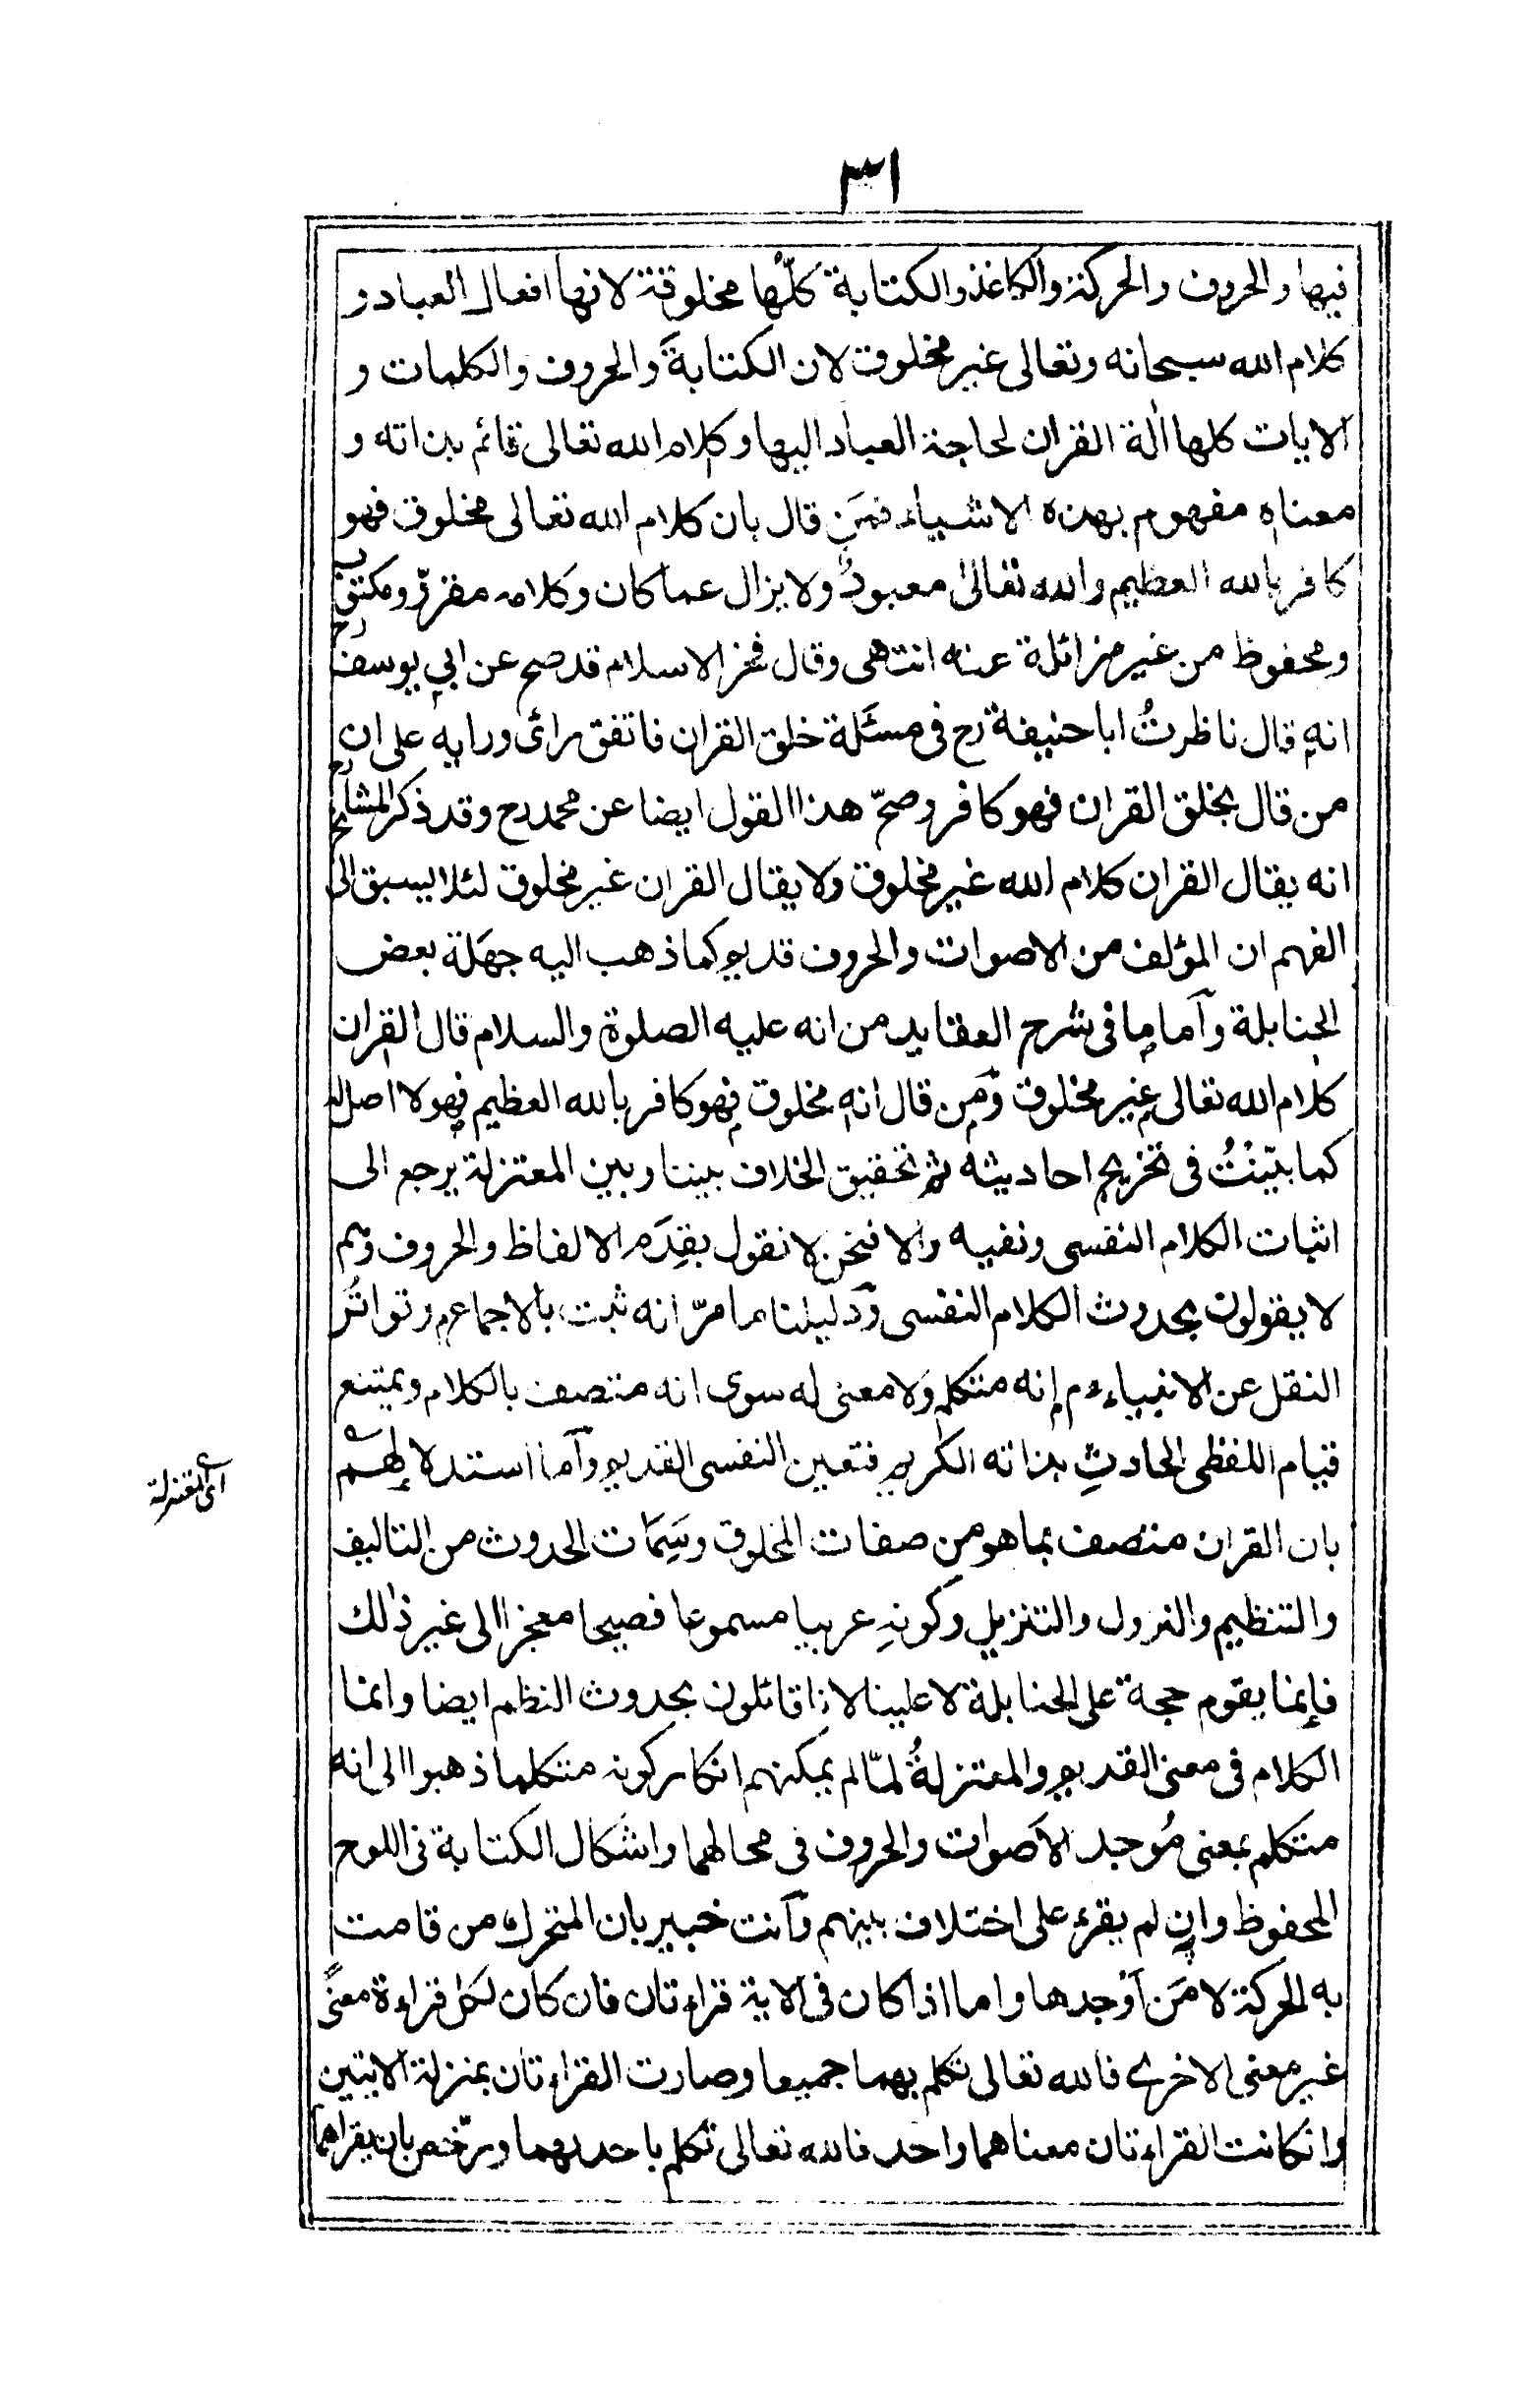 ٣١
فيها والحروف والحركة والكاغذ والكتابة كلّها مخلوقة لانها افعال العباد و
كلام الله سبحانه وتعالى غير مخلوق لان الكتابةَ والحروف والكلمات و
الايات كلها اٰلة القران لحاجة العباد اليها وكلام الله تعالى قائم بذاته و
معناه مفهوم بهذه الاشياء فمَن قال بان كلام الله تعالى مخلوق فهو
كافر بالله العظيم والله تعالىٰ معبودٌ ولا يزال عما كان وكلامه مقروّ ومكتوب
ومحفوظ من غير مزائلة عنه انتهى وقال فخر الاسلام قد صح عن ابي يوسف رح
انه قال ناظرتُ ابا حنيفة رح فى مسئَلة خلق القران فاتفق رائى ورايه على ان
من قال بخلق القران فهو كافر وصحّ هذا القول ايضا عن محمد رح وقد ذكر المشايخ رح
انه يقال القران كلام الله غير مخلوق ولا يقال القران غير مخلوق لئلا يسبق الى
الفهم ان المؤلف من الاصوات والحروف قديم كما ذهب اليه جهَلة بعض
الحنابلة وآما ما فى شرح العقايد من انه عليه الصلوة والسلام قال القران
كلام الله تعالى غير مخلوق ومَن قال انه مخلوق فهو كافر بالله العظيم فهو لا اصل له
كما بيّنتُ فى تخريج احاديثه ثم تحقيق الخلاف بيننا وبين المعتزلة يرجع الى
اثبات الكلام النفسى ونفيه والا فنحن لا نقول بقِدَم الالفاظ والحروف وهم
لا يقولون بحدوث الكلام النفسى ودليلنا ما مرّ انه ثبت بالاجماع وتواتُر
النقل عن الانبياء ءم انه متكلم ولا معنى له سوى انه متصف بالكلام ويمتنع
قيام اللفظى الحادثِ بذاته الكريم فتعين النفسى القديم وآما استدلالهم
اى المعتزلة
بان القران متصف بما هو من صفات المخلوق وسِمَات الحدوث من التاليف
والتنظيم والنزول والتنزيل وكونه عربيا مسموعا فصيحا معجزا الى غير ذلك
فإنما يقوم حجة على الحنابلة لا علينا لانا قائلون بحدوث النظم ايضا وانما
الكلام فى معنى القديم والمعتزلةُ لمّا لم يمكنهم انكار كونه متكلما ذهبوا الى انه
متكلم بمعنى مُوجد الاصوات والحروف فى محالها واشكال الكتابة فى اللوح
المحفوظ وان لم يقرء على اختلاف بينهم وآنت خبير بان المتحرك من قامت
به الحركة لا مَن اَوْجدها واما اذا كان فى الاية قراءتان فان كان لكل قراءة معنًى
غير معنى الاخرى فالله تعالى تكلم بهما جميعا وصارت القراءتان بمنزلة الايتين
وانكانت القراءتان معناهما واحد فالله تعالى تكلم باحدىهما ورخّص بان يقراهما